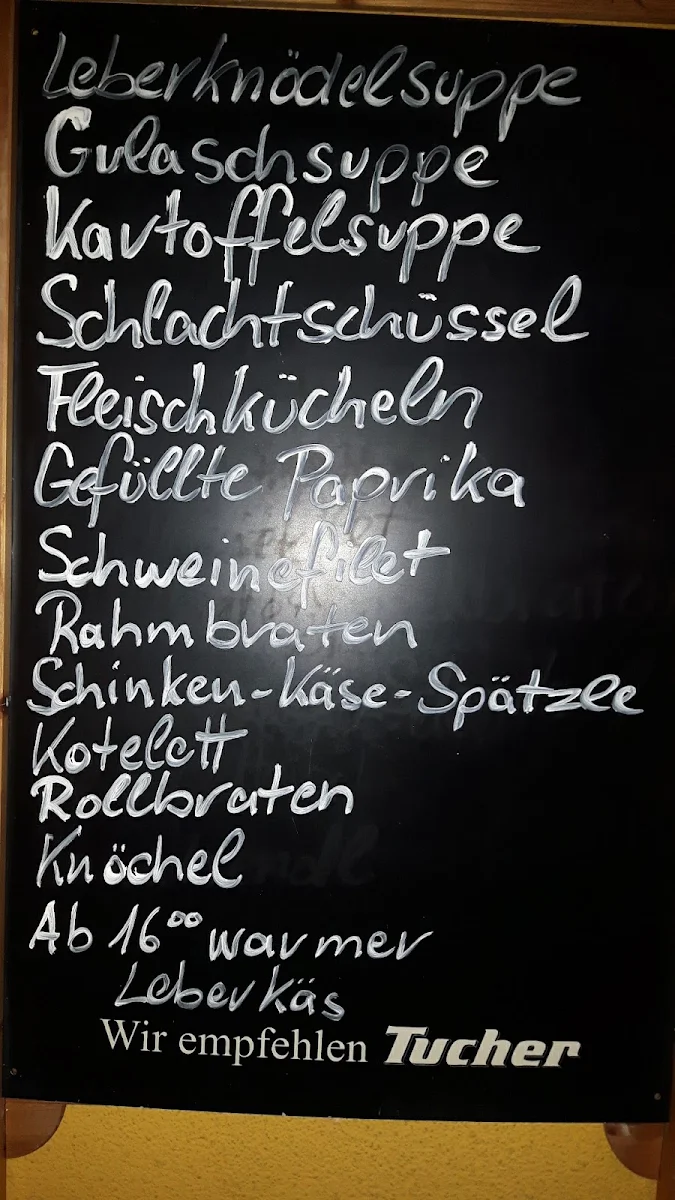 Leberknödelsuppe
Gulaschsuppe
Kartoffelsuppe
Schlachtschüssel
Fleischkücheln
Gefüllte Paprika
Schweinefilet
Rahmbraten
Schinken-Käse-Spätzle
Kotelett
Rollbraten
Knöchel
Ab 16⁰⁰ warmer
Leberkäs
Wir empfehlen Tucher